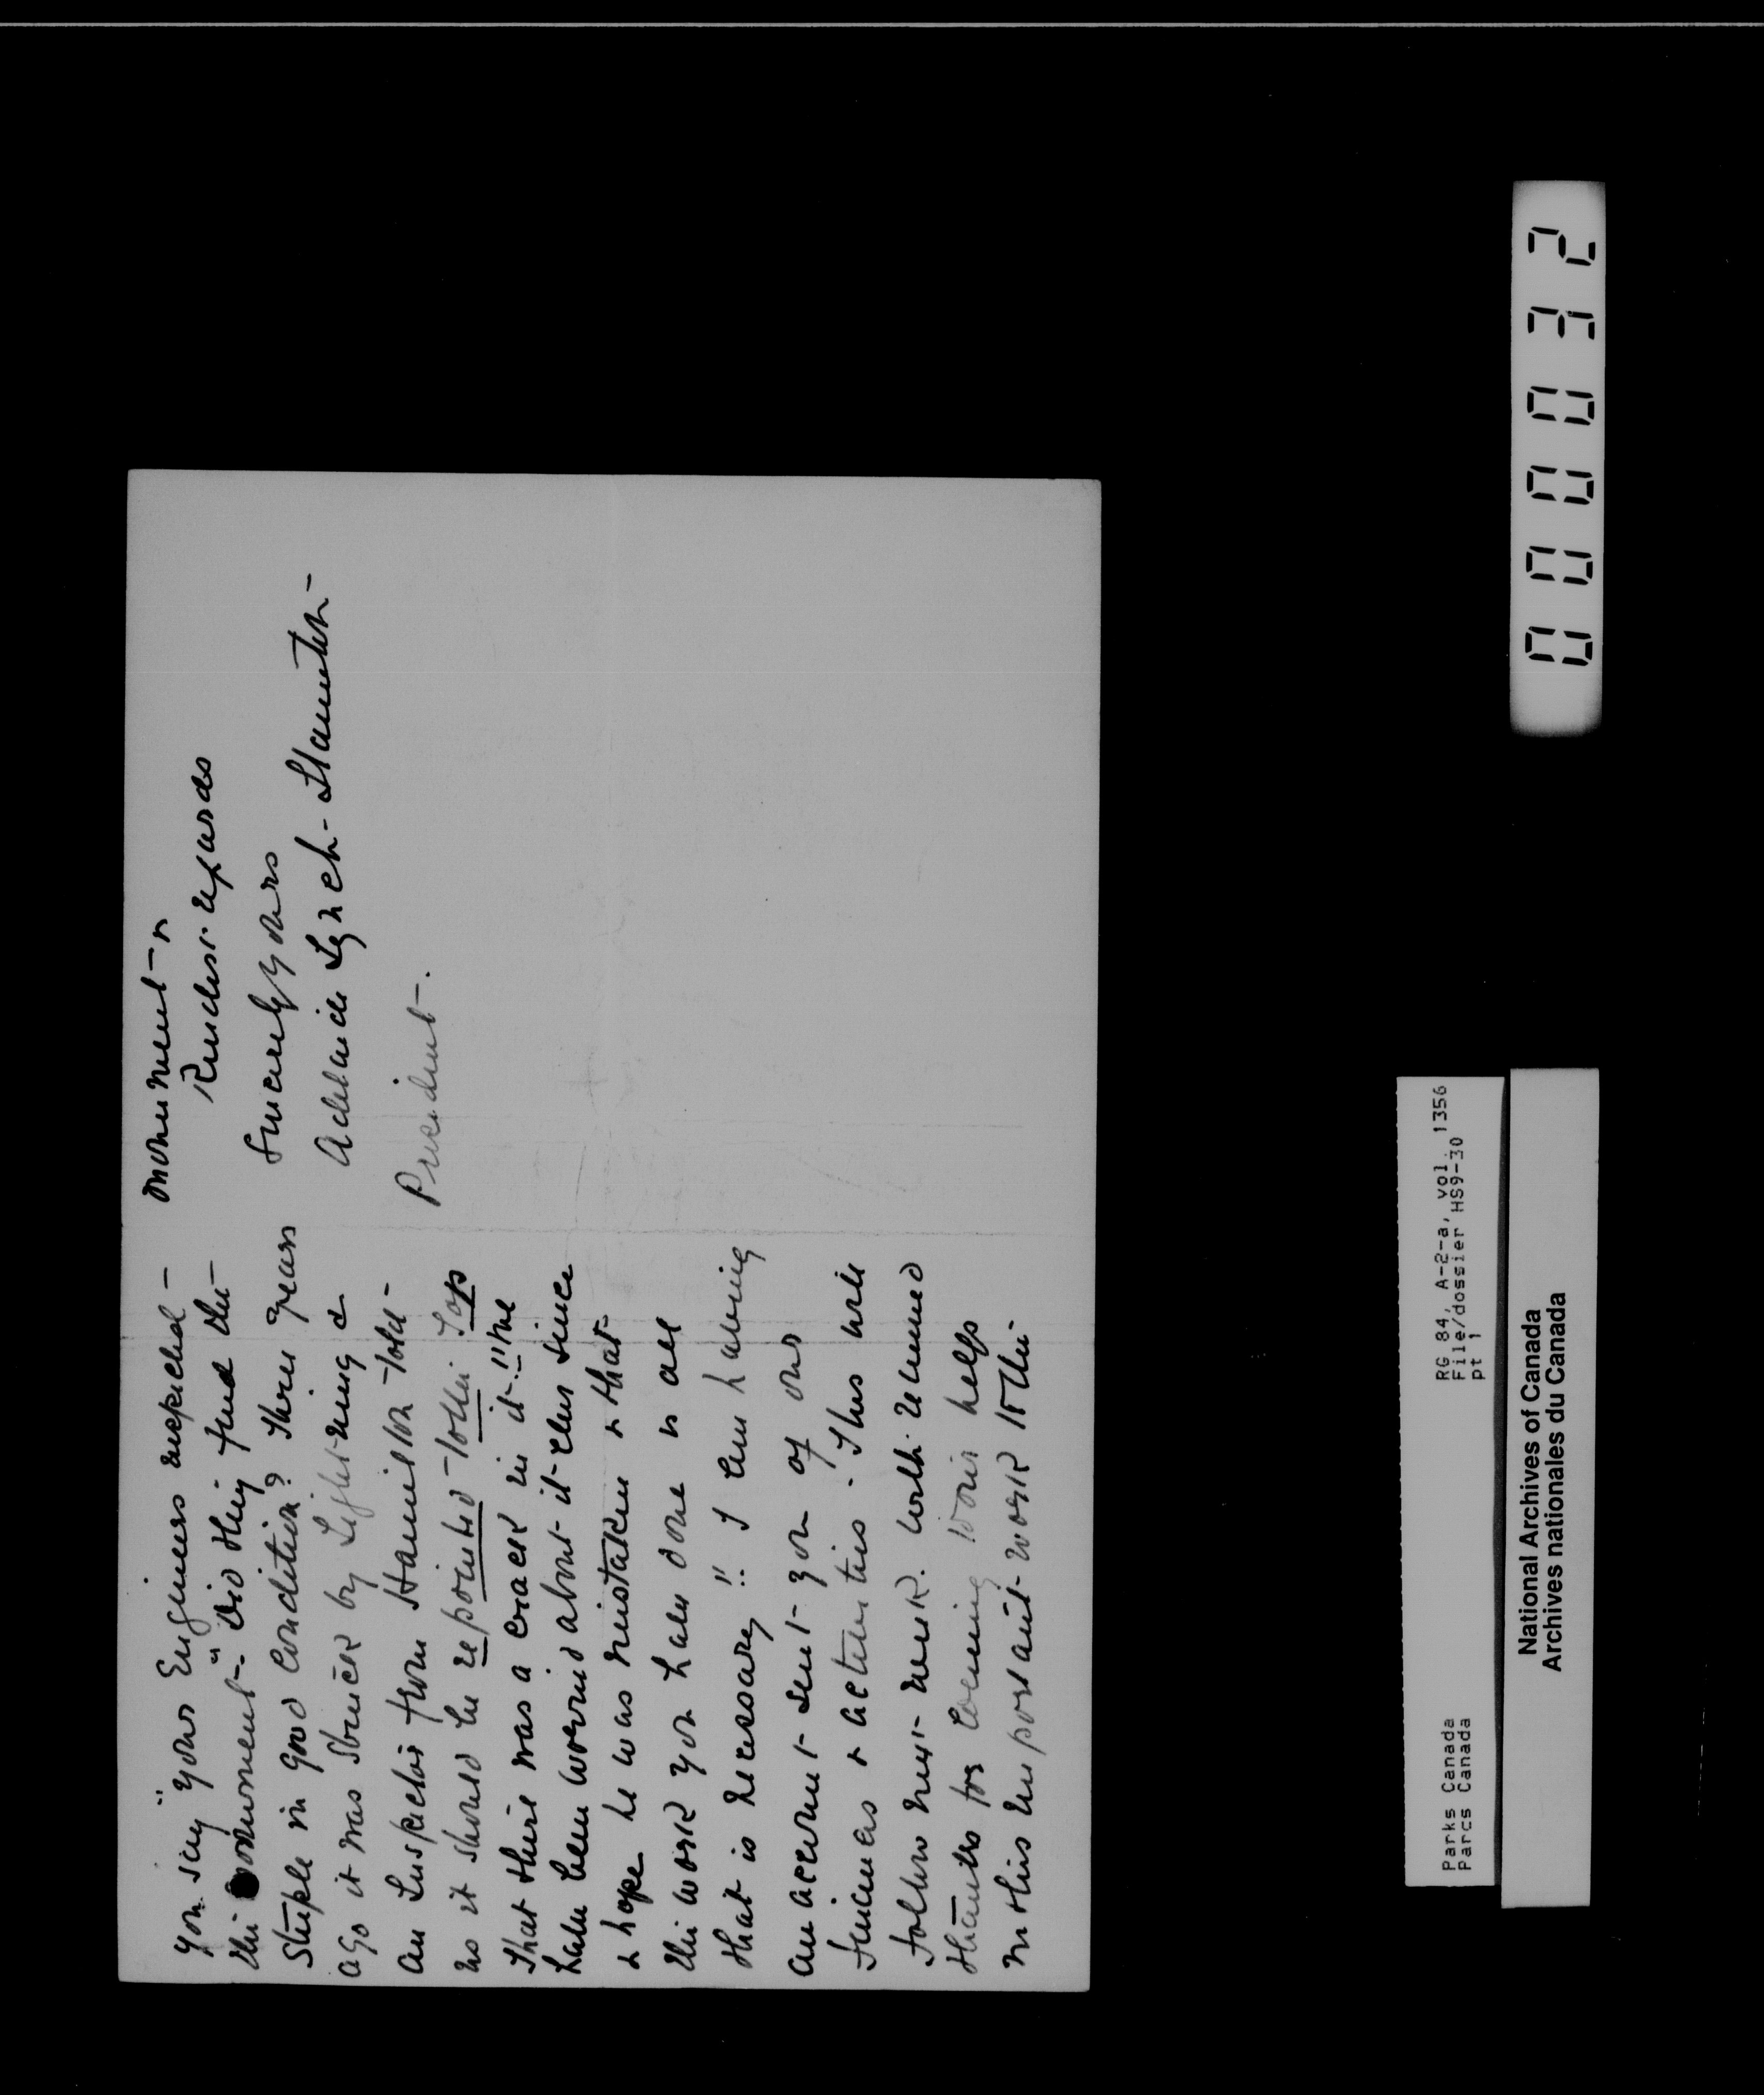 you say "your Engineers inspected
the monument". Did they find the
Steeple in good condition? Three years
ago it was struck by Lightning &
an Inspector from Hamilton told
us it should be repointed to the top
that there was a crack in it!! We
have been worried about it ever since
& hope he was mistaken & that
the work you have done is all
that is necessary!! I am having
an account sent you of our
finances & activities. This will
follow next week. With renewed
thanks for coming to our help
in this important work to the
monument &
Kindest regards
Sincerely yours
Adelaide Lynch-Staunton
President.
Parks Canada
Parcs Canada
RG 84, A-2-a, vol. 1356
File/dossier HS9-30
pt 1
National Archives of Canada
Archives nationales du Canada
000032